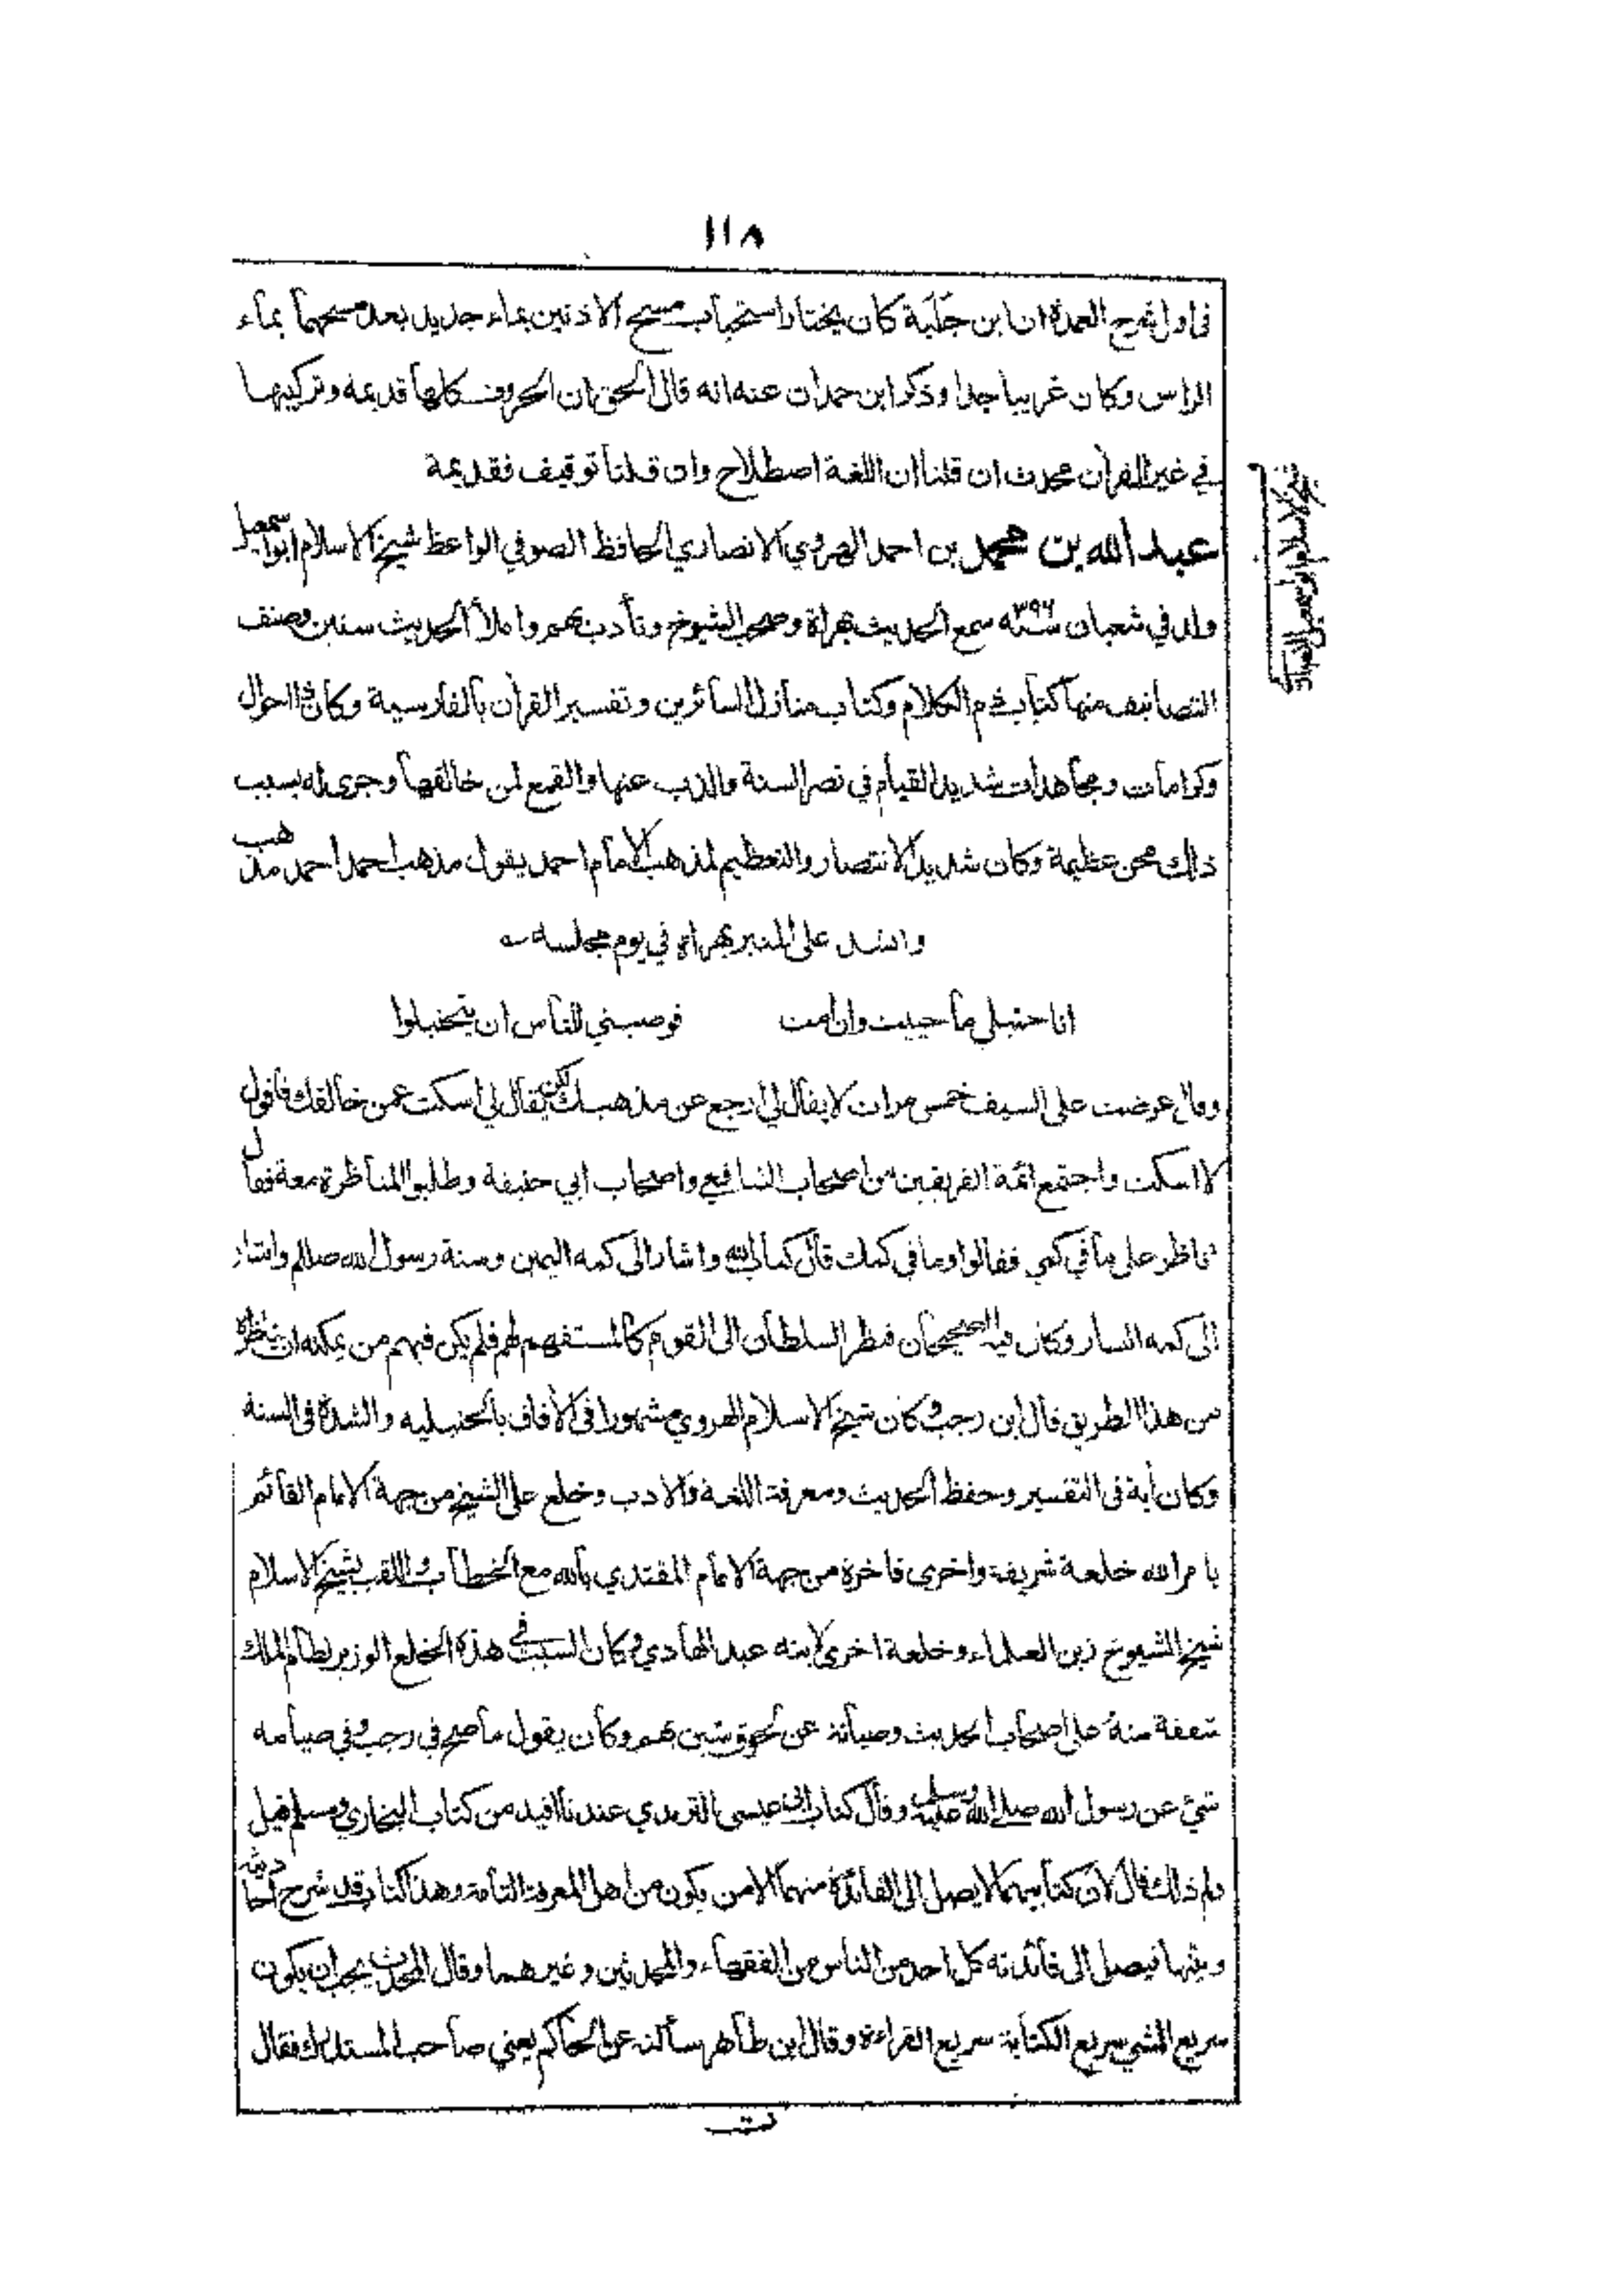 ١١٨
في اول شرح العمدة ان ابن جَلَبَة كان يختار استحباب مسح الاذنين بماء جديد بعد مسحهما بماء
الراس وكان غريبا جدا وذكر ابن حمدان عنه انه قال الحق ان الحروف كلها قديمة وتركيبها
في غير القرآن محدث ان قلنا ان اللغة اصطلاح وان قلنا توقيف فقديمة
عبد الله بن محمد بن احمد الهروي الانصاري الحافظ الصوفي الواعظ شيخ الاسلام ابو اسمعيل
ولد في شعبان سنة ٣٩٦ سمع الحديث بهراة وصحب الشيوخ وتأدب بهم واملأ الحديث سنين وصنف
التصانيف منها كتاب ذم الكلام وكتاب منازل السائرين وتفسير القرآن بالفارسية وكان ذا احوال
وكرامات ومجاهدات شديد القيام في نصر السنة والذب عنها والقمع لمن خالفها وجرى له بسبب
ذلك محن عظيمة وكان شديد الانتصار والتعظيم لمذهب الامام احمد يقول مذهب احمد احمد مذهب
وانشد على المنبر بهراة في يوم مجلسه
انا حنبلي ما حييت وان امت فوصيتي للناس ان يتحنبلوا
وقال عرضت على السيف خمس مرات لا يقال لي ارجع عن مذهبك لكن يقال لي اسكت عمن خالفك فاقول
لا اسكت واجتمع ائمة الفريقين من اصحاب الشافعي واصحاب ابي حنيفة وطلبوا المناظرة معه فقال
نناظر على ما في كمي فقالوا وما في كمك قال كتاب الله واشار الى كمه اليمين وسنة رسول الله صلعم واشار
الى كمه اليسار وكان فيه الصحيحان فنظر السلطان الى القوم كالمستفهم لهم فلم يكن فيهم من يمكنه ان يناظره
من هذا الطريق قال ابن رجب وكان شيخ الاسلام الهروي مشهورا في الآفاق بالحنبلية والشدة في السنة
وكان آية في التفسير وحفظ الحديث ومعرفة اللغة والادب وخلع على الشيخ من جهة الامام القائم
بامر الله خلعة شريفة واخرى فاخرة من جهة الامام المقتدي بالله مع الخطاب واللقب بشيخ الاسلام
شيخ الشيوخ زين العلماء وخلعة اخرى لابنه عبد الهادي وكان السبب في هذه الخلع الوزير نظام الملك
شفقة منه على اصحاب الحديث وصيانة عن لحوق شين بهم وكان يقول ما صح في رجب وفي صيامه
شيء عن رسول الله صلى الله عليه وسلم وقال كتاب ابي عيسى الترمذي عندنا افيد من كتاب البخاري ومسلم قيل
لم ذلك قال لان كتابيهما لا يصل الى الفائدة منهما الا من يكون من اهل المعرفة التامة وهذا كتاب قد شرح احاديثه
وبينها فيصل الى فائدته كل احد من الناس من الفقهاء والمحدثين وغيرهما وقال المحدث يجب ان يكون
سريع المشي سريع الكتابة سريع القراءة وقال ابن طاهر سألته عن الحاكم يعني صاحب المستدرك فقال